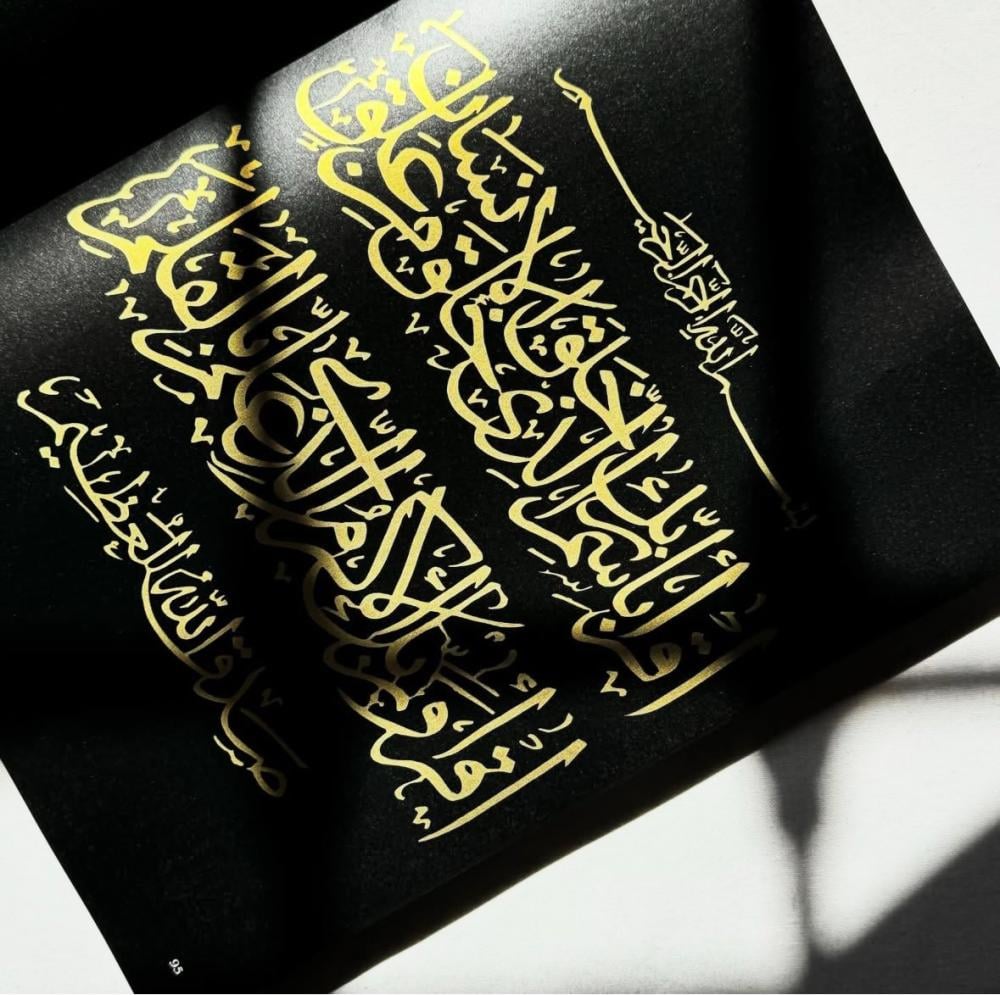 بسم الله الرحمن الرحيم
اقرأ باسم ربك الذي خلق خلق الإنسان من علق
اقرأ وربك الأكرم الذي علم بالقلم
صدق الله العظيم
95